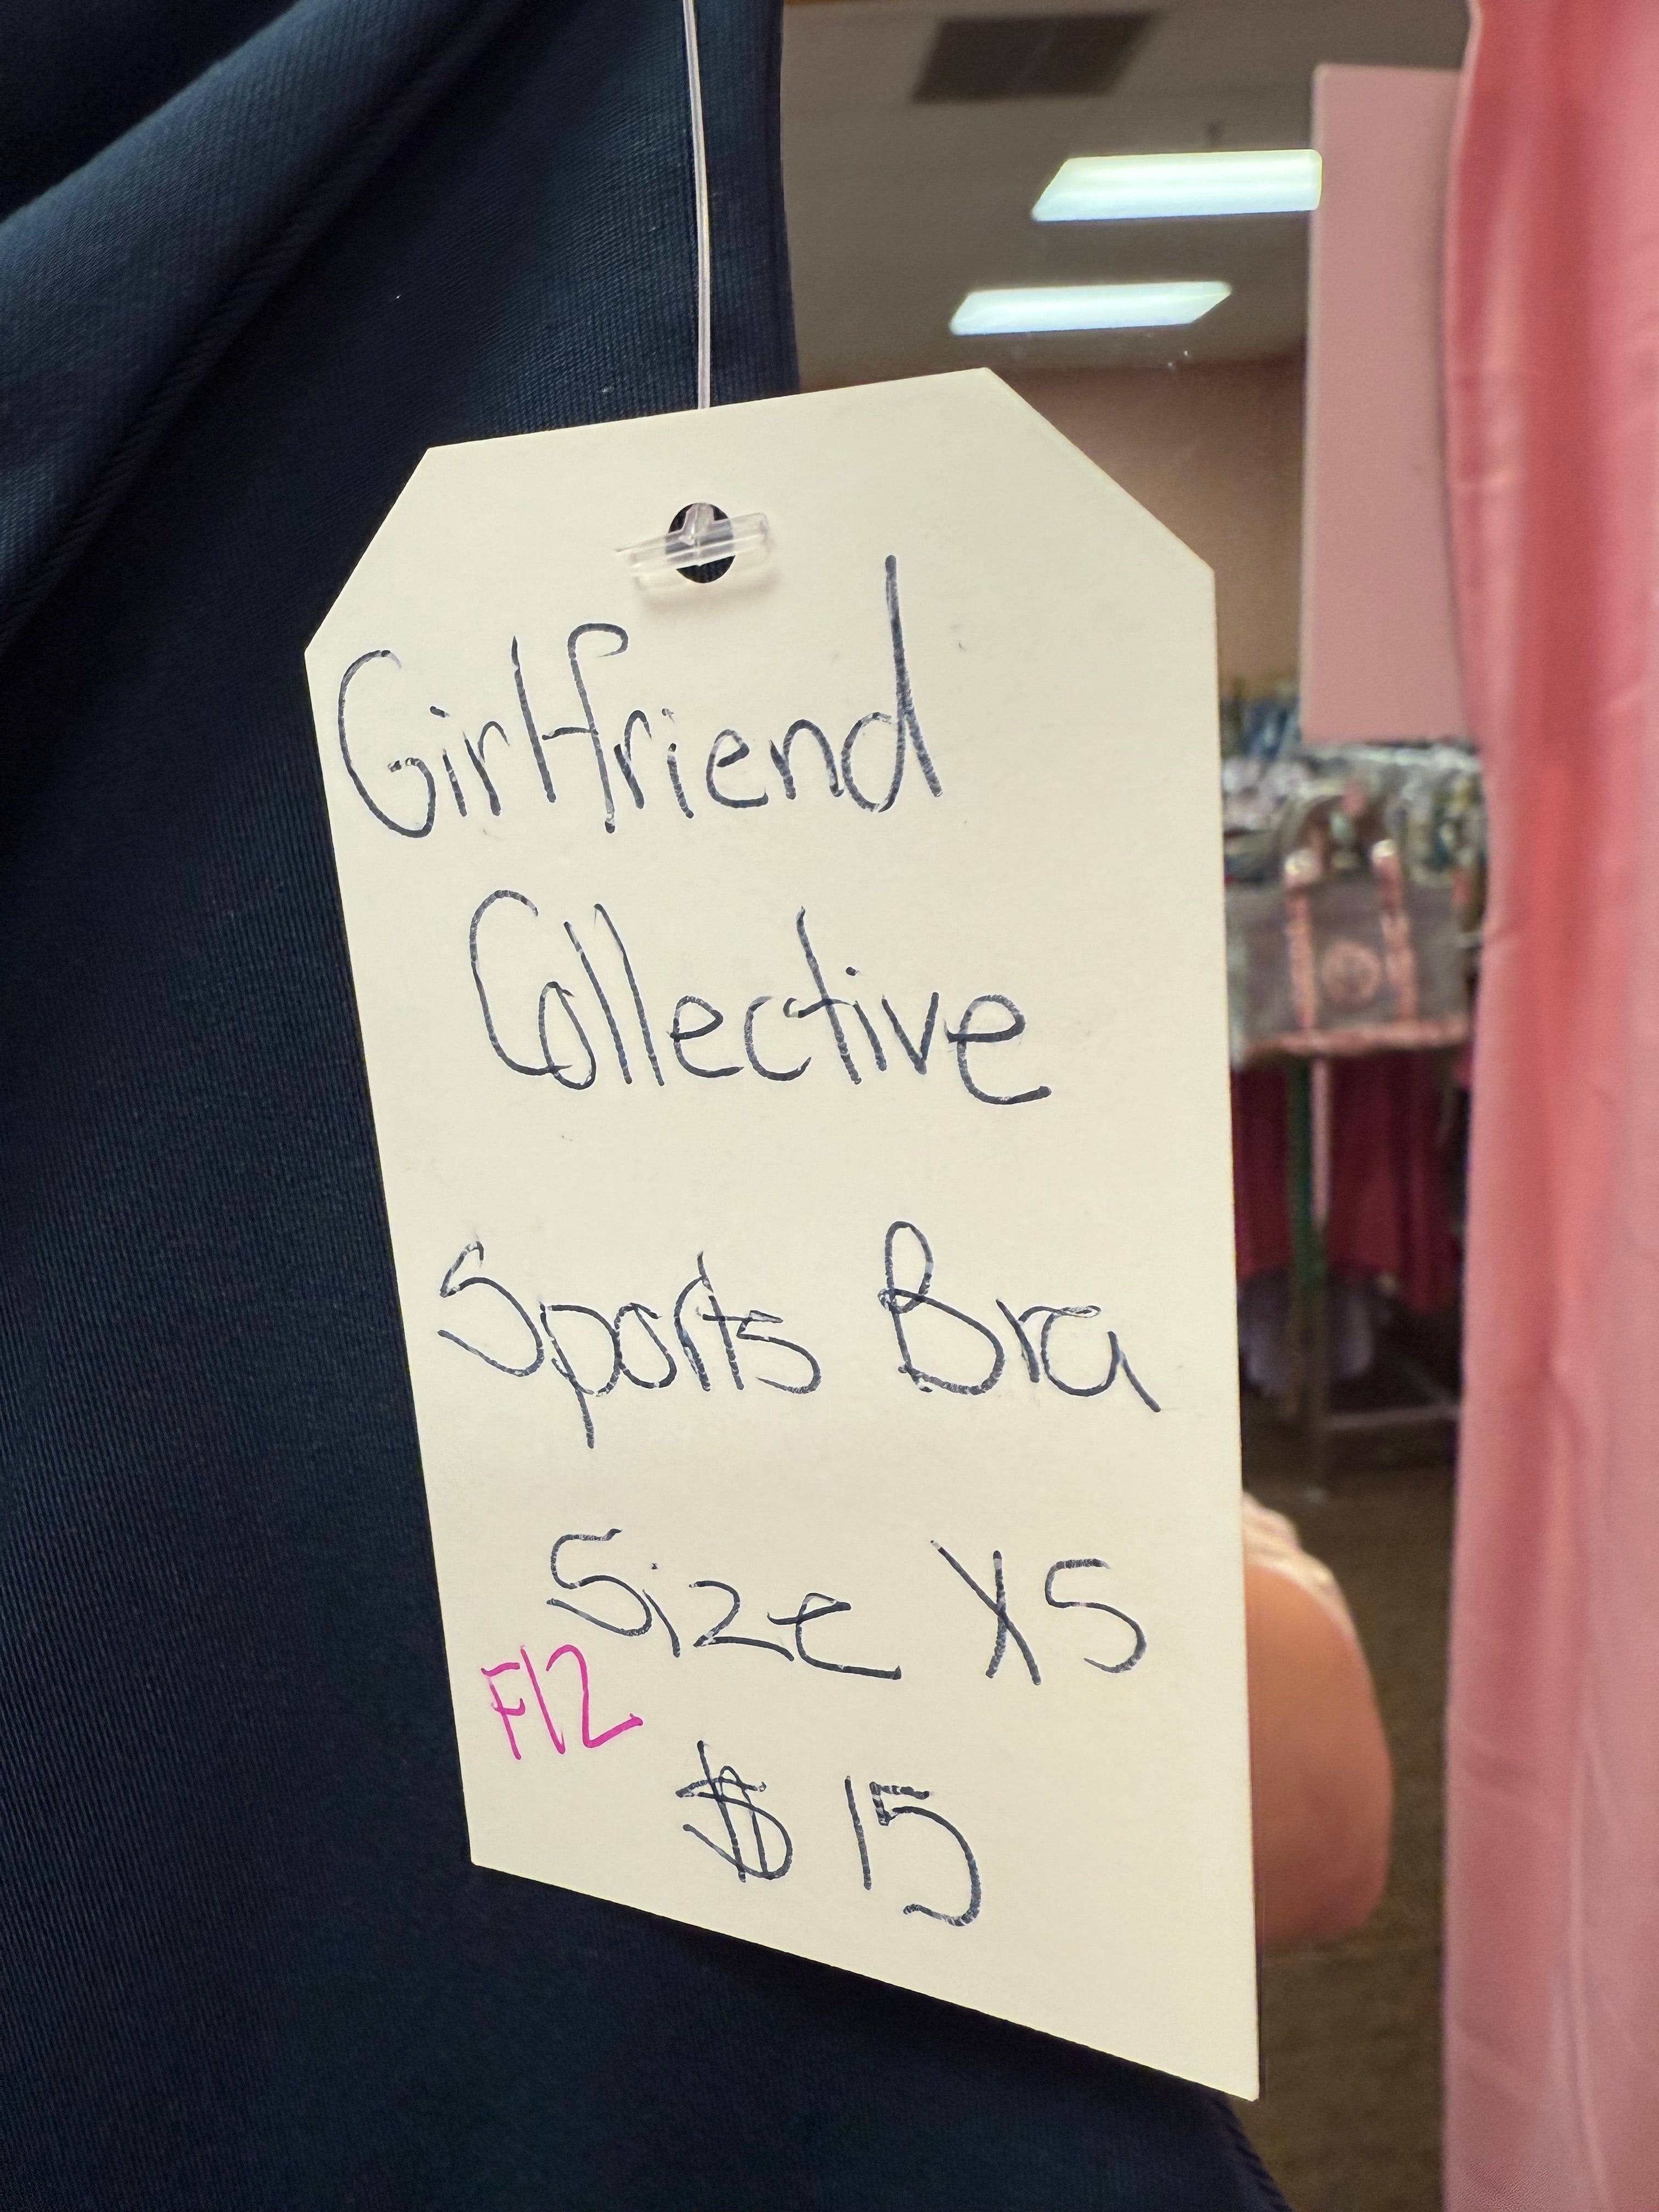 Girlfriend
Collective
Sports Bra
Size XS
F12
$ 15